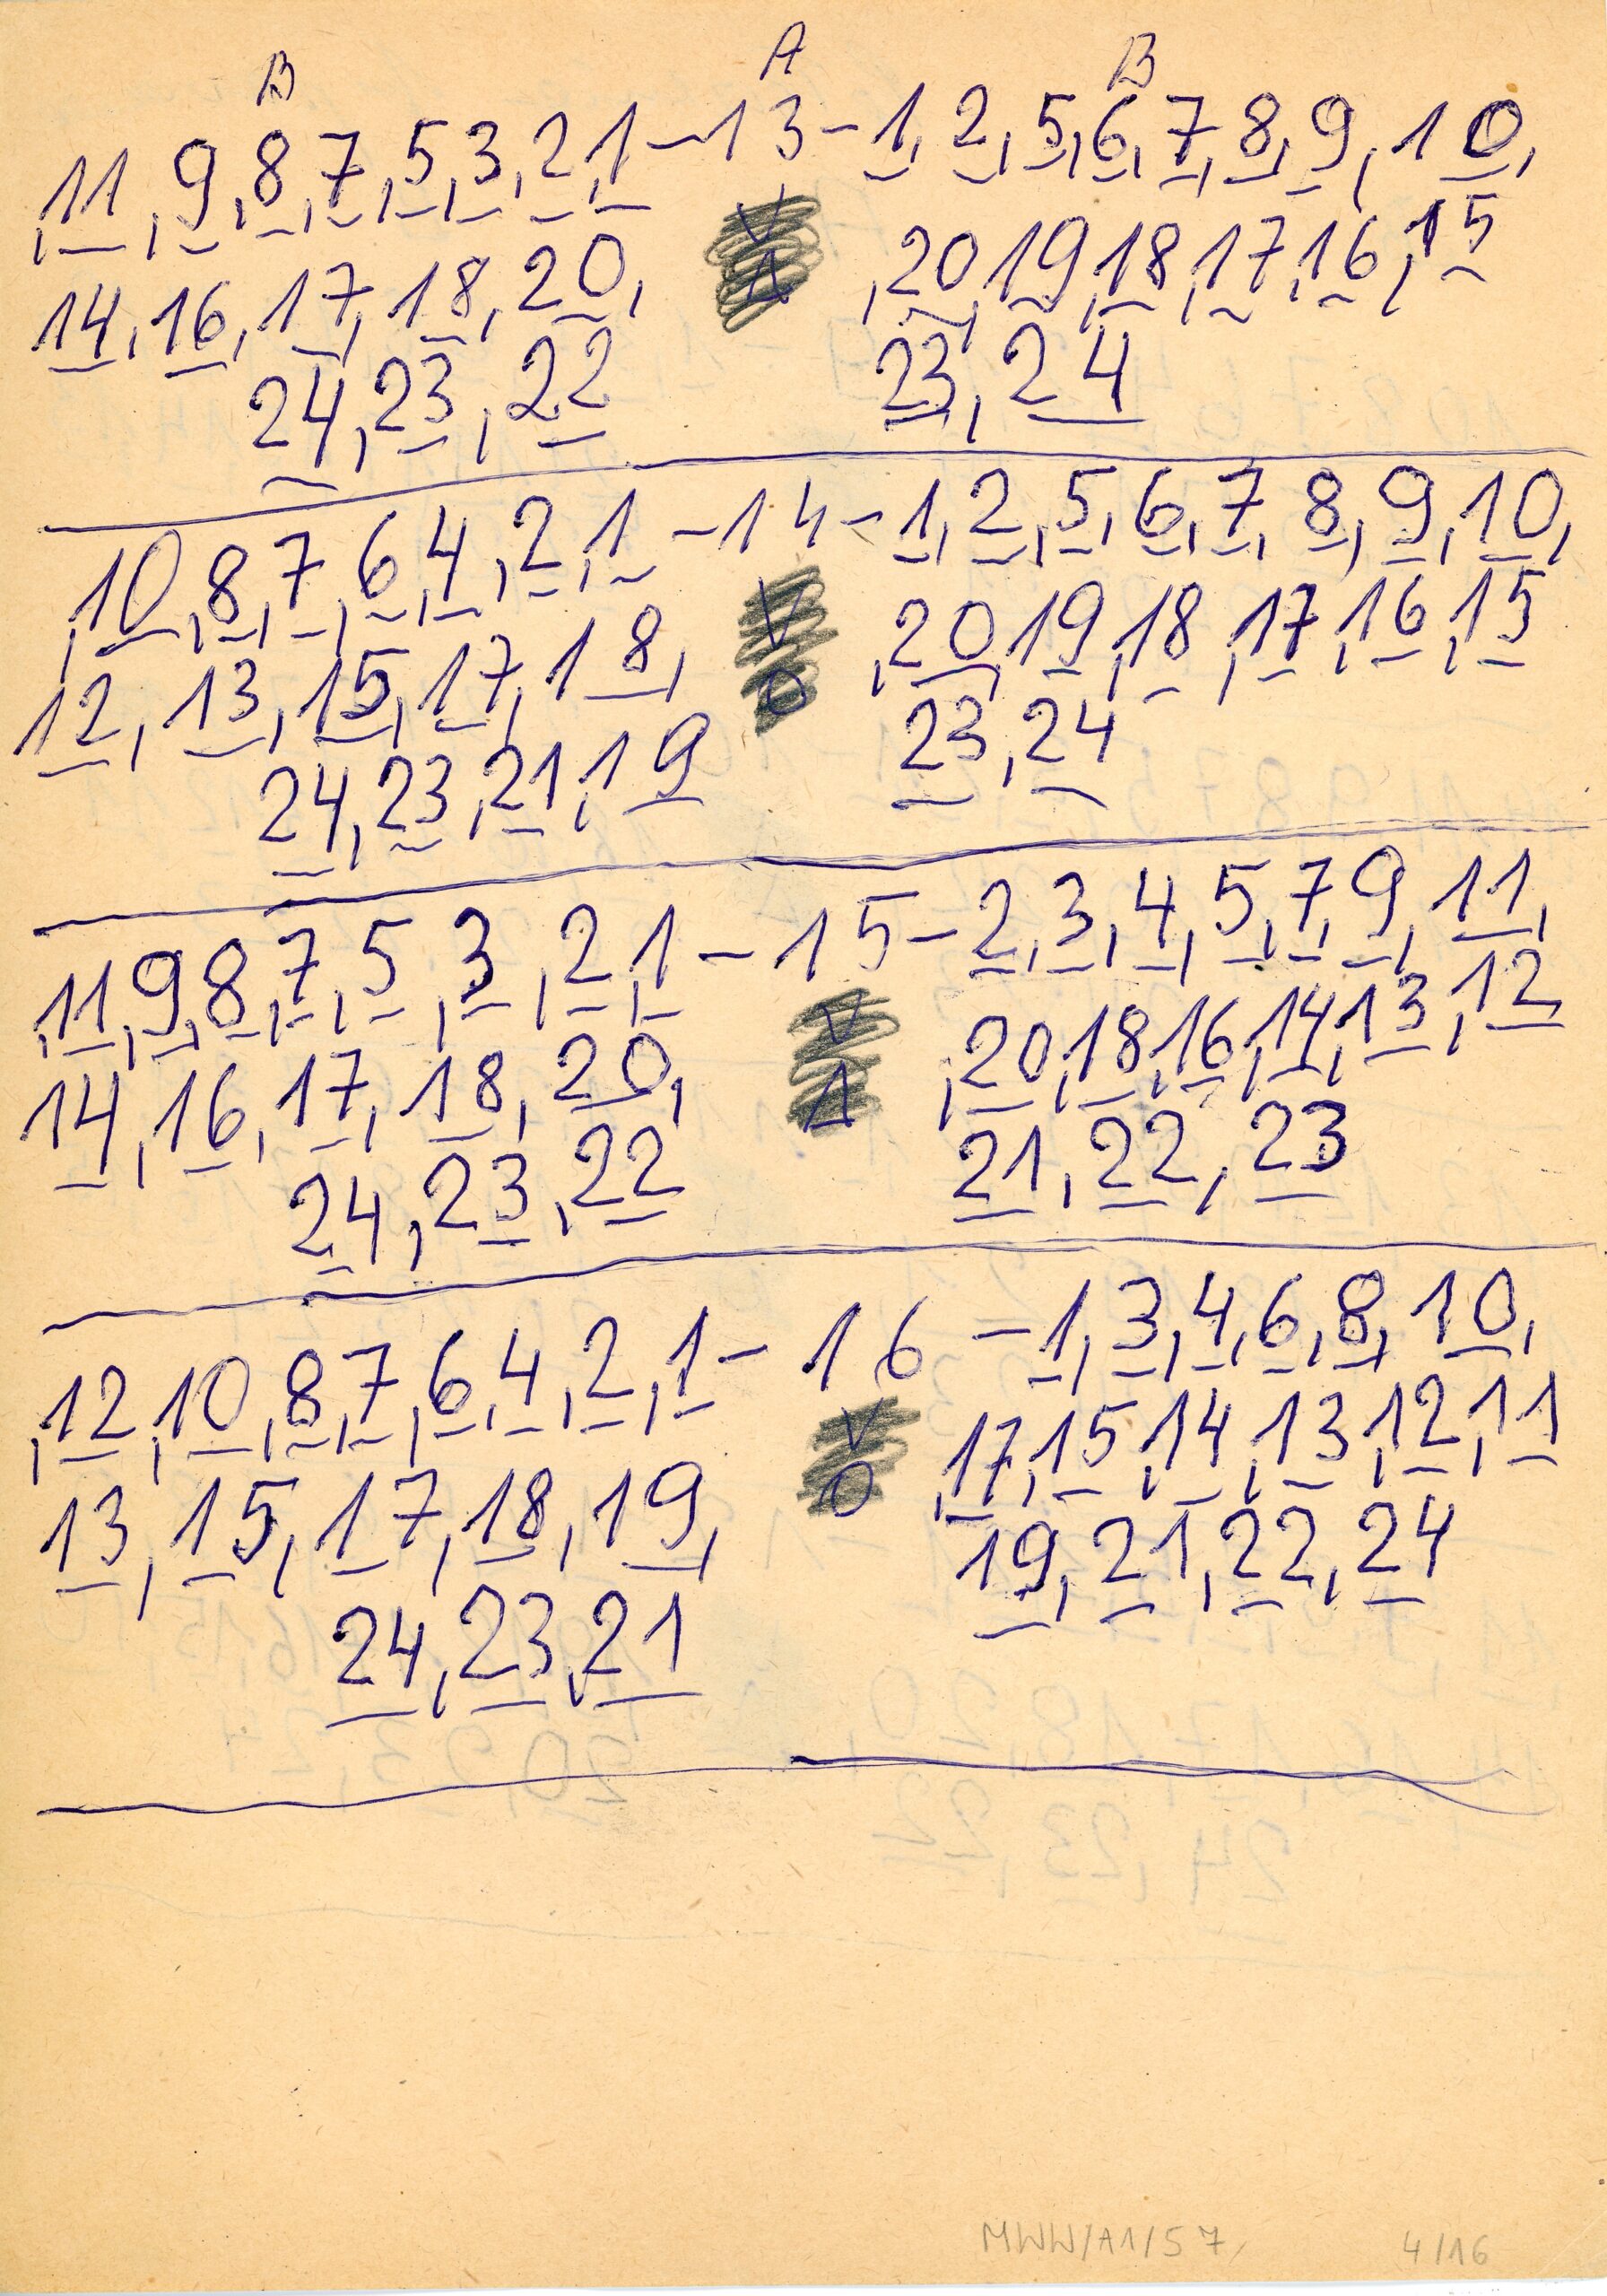 B A B
11, 9, 8, 7, 5, 3, 2, 1 – 13 – 1, 2, 5, 6, 7, 8, 9, 10,
14, 16, 17, 18, 20, V ,20, 19, 18, 17, 16, 15
24, 23, 22 23, 24
,10, 8, 7, 6, 4, 2, 1 – 14 – 1, 2, 5, 6, 7, 8, 9, 10,
12, 13, 15, 17, 18, V ,20, 19, 18, 17, 16, 15
24, 23, 21, 19 O 23, 24
,11, 9, 8, 7, 5, 3, 2, 1 – 15 – 2, 3, 4, 5, 7, 9, 11,
14, 16, 17, 18, 20, V ,20, 18, 16, 14, 13, 12
24, 23, 22 21, 22, 23
,12, 10, 8, 7, 6, 4, 2, 1 – 16 – 1, 3, 4, 6, 8, 10,
13, 15, 17, 18, 19, V ,17, 15, 14, 13, 12, 11
24, 23, 21 O 19, 21, 22, 24
MWW/A1/57 4/16